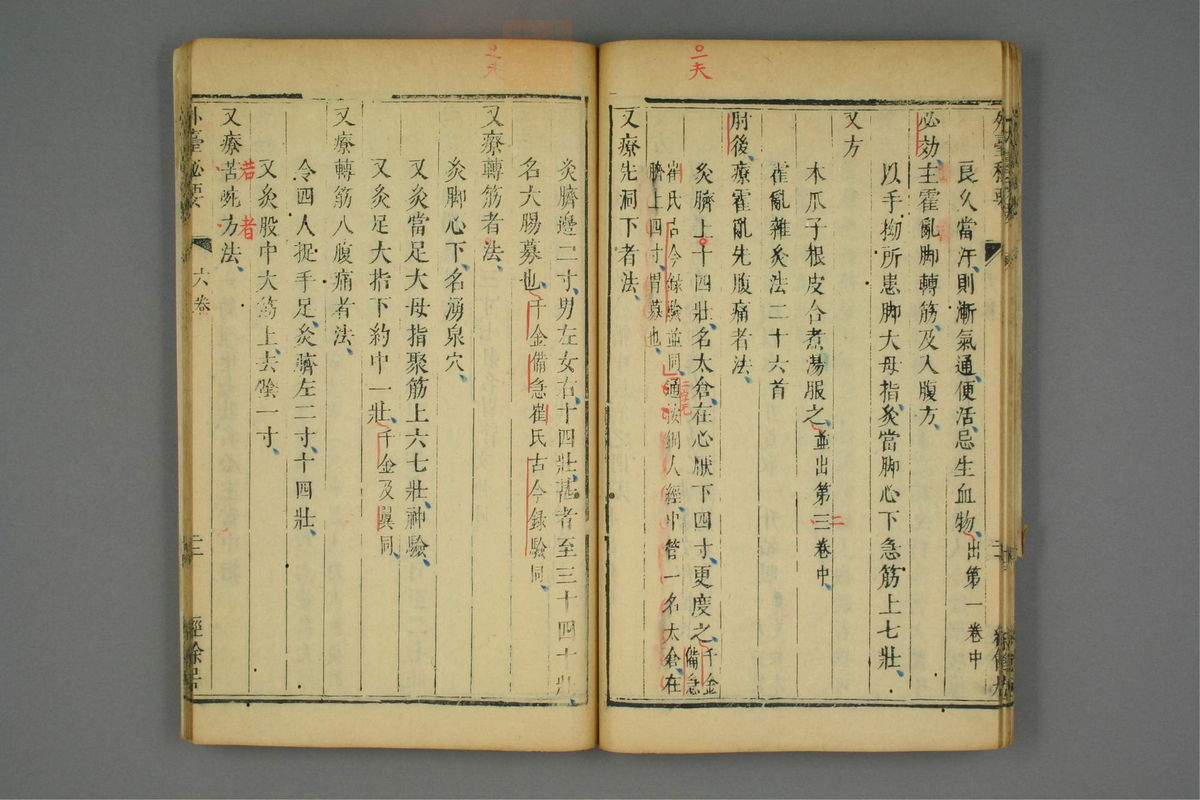 良久當汗則漸氣通便活忌生血物出第一卷中
必効主霍亂脚轉筋及入腹方
以手拗所患脚大母指灸當脚心下急筋上七壯
又方
木爪子根皮合煮湯服之並出第三卷中
二
霍亂雜灸法二十六首
肘後療霍亂先腹痛者法
灸臍上十四壯名太倉在心厭下四寸更度之千金備急
崔氏古今録驗並同通按銅人經中管一名太倉在
臍上四寸胃募也
又療先洞下者法
灸臍邊二寸男左女右十四壯甚者至三十四十壯
名大腸募也千金備急崔氏古今録驗同
又療轉筋者法
灸脚心下名湧泉穴
又灸當足大母指聚筋上六七壯神驗
又灸足大指下約中一壯千金及翼同
又療轉筋入腹痛者法
令四人捉手足灸臍左二寸十四壯
又灸股中大筋上去陰一寸
又療苦啘方法
若 者
外臺秘要 六卷 三 經餘居